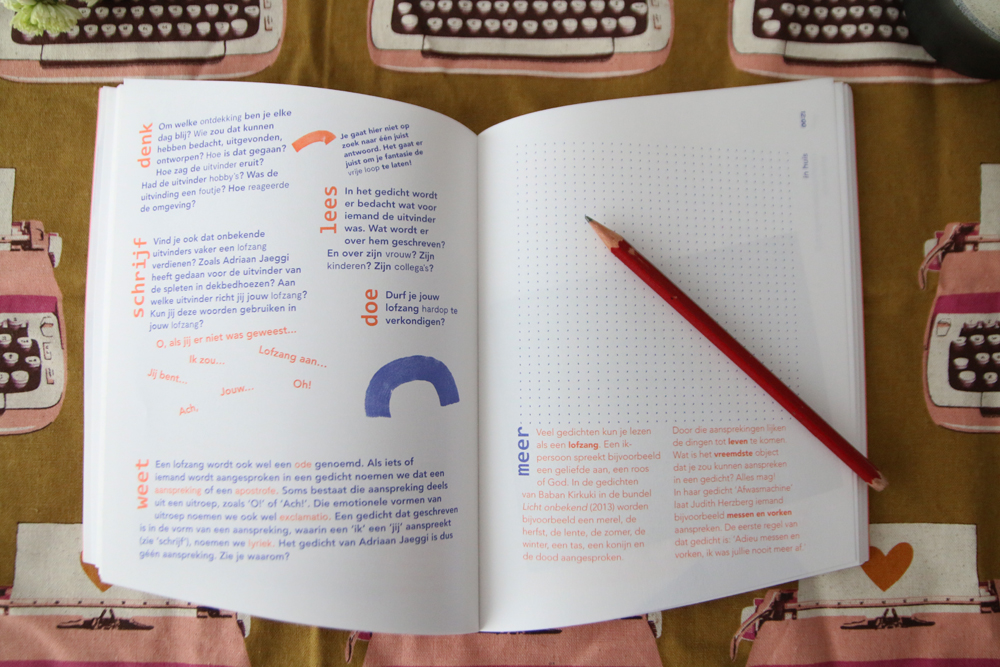 denk
Om welke ontdekking ben je elke
dag blij? Wie zou dat kunnen
hebben bedacht, uitgevonden,
ontworpen? Hoe is dat gegaan?
Hoe zag de uitvinder eruit?
Had de uitvinder hobby's? Was de
uitvinding een foutje? Hoe reageerde
de omgeving?
Je gaat hier niet op
zoek naar één juist
antwoord. Het gaat er
juist om je fantasie de
vrije loop te laten!
lees
In het gedicht wordt
er bedacht wat voor
iemand de uitvinder
was. Wat wordt er
over hem geschreven?
En over zijn vrouw? Zijn
kinderen? Zijn collega's?
schrijf
Vind je ook dat onbekende
uitvinders vaker een lofzang
verdienen? Zoals Adriaan Jaeggi
heeft gedaan voor de uitvinder van
de spleten in dekbedhoezen? Aan
welke uitvinder richt jij jouw lofzang?
Kun jij deze woorden gebruiken in
jouw lofzang?
O, als jij er niet was geweest...
Ik zou...
Lofzang aan...
Jij bent...
Jouw...
Oh!
Ach,
doe
Durf je jouw
lofzang hardop te
verkondigen?
weet
Een lofzang wordt ook wel een ode genoemd. Als iets of
iemand wordt aangesproken in een gedicht noemen we dat een
aanspreking of een apostrofe. Soms bestaat die aanspreking deels
uit een uitroep, zoals 'O!' of 'Ach!'. Die emotionele vormen van
uitroep noemen we ook wel exclamatio. Een gedicht dat geschreven
is in de vorm van een aanspreking, waarin een 'ik' een 'jij' aanspreekt
(zie 'schrijf'), noemen we lyriek. Het gedicht van Adriaan Jaeggi is dus
géén aanspreking. Zie je waarom?
in huis
meer
Veel gedichten kun je lezen
als een lofzang. Een ik-
persoon spreekt bijvoorbeeld
een geliefde aan, een roos
of God. In de gedichten
van Baban Kirkuki in de bundel
Licht onbekend (2013) worden
bijvoorbeeld een merel, de
herfst, de lente, de zomer, de
winter, een tas, een konijn en
de dood aangesproken.
Door die aansprekingen lijken
de dingen tot leven te komen.
Wat is het vreemdste object
dat je zou kunnen aanspreken
in een gedicht? Alles mag!
In haar gedicht 'Afwasmachine'
laat Judith Herzberg iemand
bijvoorbeeld messen en vorken
aanspreken. De eerste regel van
dat gedicht is: 'Adieu messen en
vorken, ik was jullie nooit meer af.'